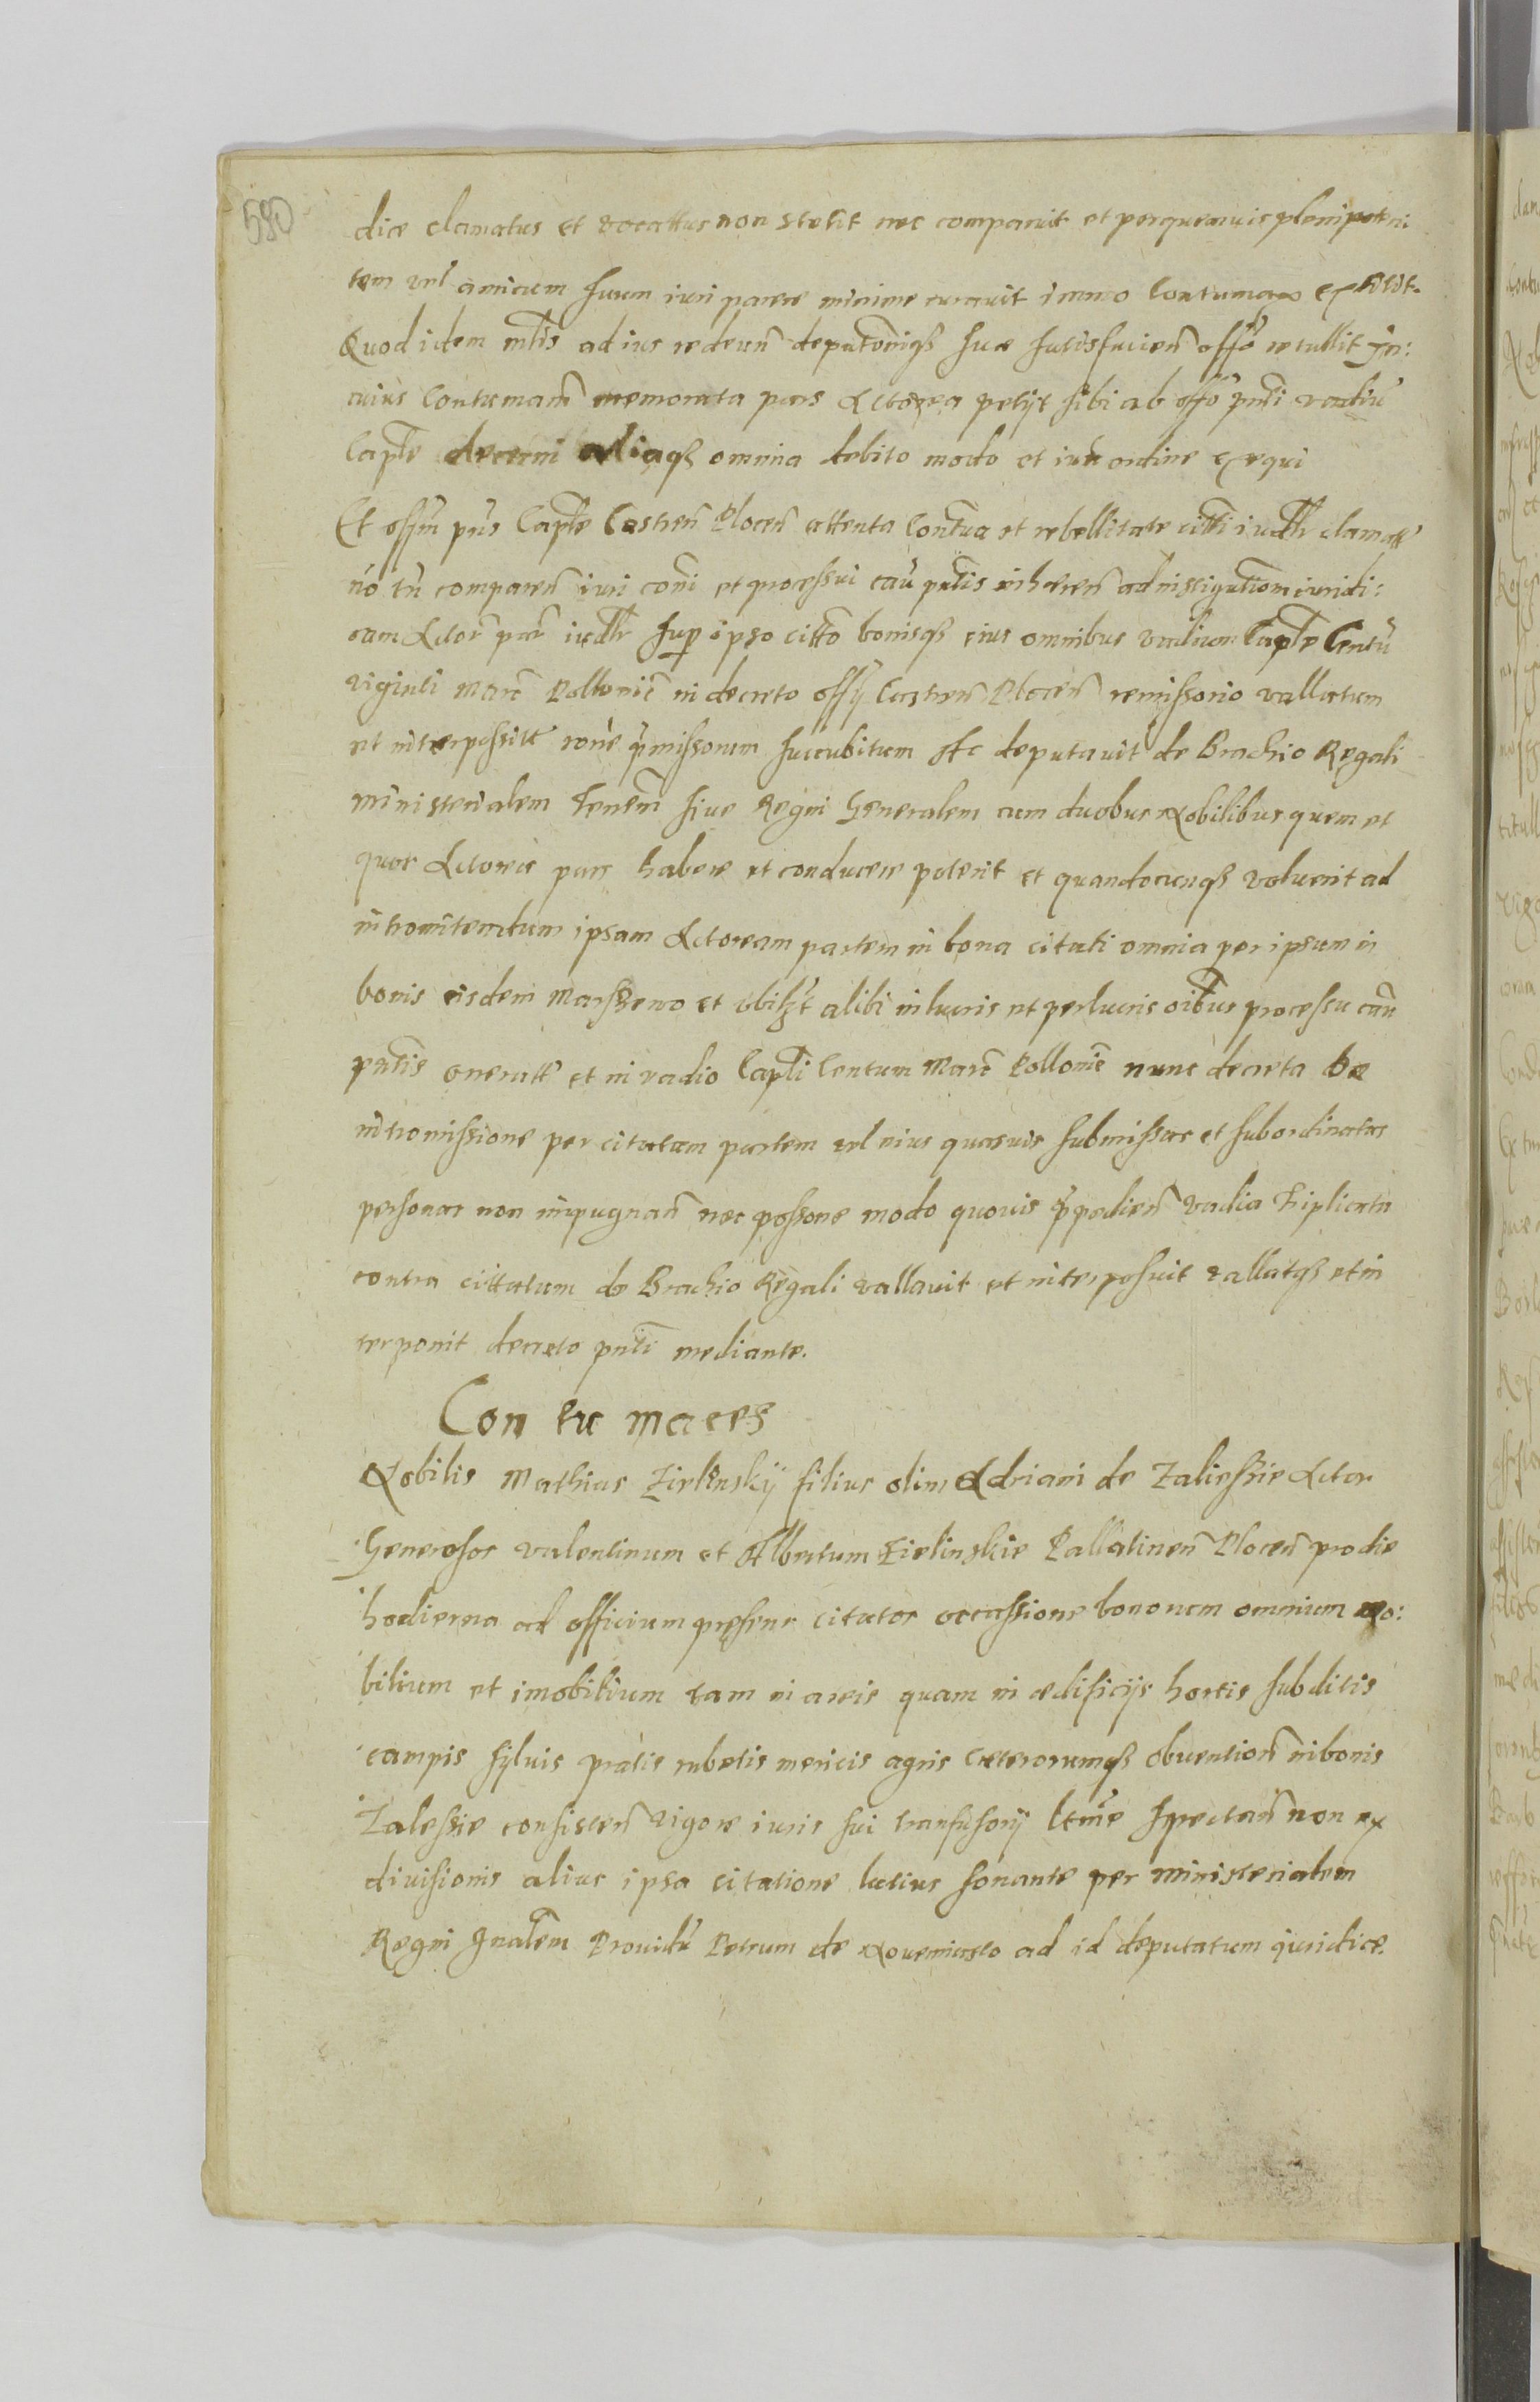 580
dice clamatus et vocattus non stetit nec comparuit et per quemuis plenipoten
tem vel amicum suum iuri parere minime curauit immo Contumax extitit.
Quod idem mlis ad ius redeun̄ deputoniq3 suæ satisfacien̄ offo retullit In:
cuius Contumam̄ memorata pars Actorea petijt sibi ab offo pnti vadiū
Captle decerni aliaq3 omnia debito modo et iuris ordine exequi
Et offm pns Captle Castren̄ Plocen̄ attenta Contua et rebellitate citti iudlr clamatt
nō tn̄ comparen̄ iuri coni et processui cau pntis inhæren̄ ad nistigationem iuridi:
cam Actor̄ par iudlr sup ipso citto bonisq3 eius omnibus vadium Captle Centū
viginti Marc̄ Pollonic̄ in decreto offij Castren̄ Plocen̄ remissorio vallatum
et interpositt rone p̄missorum succubitum Ac deputauit de Brachio Regali
ministerialem Terrēm siue Regni Generalem cum duobus Nobilibus quem et
quos Actorea pars habere et conducere poterit et quandocunq3 voluerit ad
intromittendum ipsam Actoream partem in bona citati omnia per ipsum in
bonis eisdem Marszewo et vbilzt alibi in lucris et perlucris oibus processu cau
pntis oneratt et in vadio Captli Centum Marc̄ Pollonic̄ nunc decreta
intromissione per citatum partem vel eius quasuis submissas et subordinatas
personas non impugnan̄ nec possone modo quouis p̄pedien̄ vadia triplicata
contra cittatum de Brachio Regali vallauit et interposuit vallatq3 et in
terponit decreto pnti mediante.
Con tu maces
Nobilis Mathias Zielinskij filius olim Adriani de Zaliessie Actor
Generosos Valentinum et Albertum Zielinskie Pallatinen̄ Plocen̄ pro die
hodierna ad officium præsens citatos occassione bonorum omnium mo:
bilium et imobilium tam in areis quam in ædificijs hortis subditis
campis syluis pratis rubetis mericis agris cæterorumq3 obuention̄ in bonis
Zalessie consisten̄ vigore iuris sui transfusorij ltme spectan̄ non ex
diuisionis alius ipsa citatione latius sonante per Ministerialem
Regni Gnalem Prouidū Petrum de Nouemiasto ad id deputatum iuridice